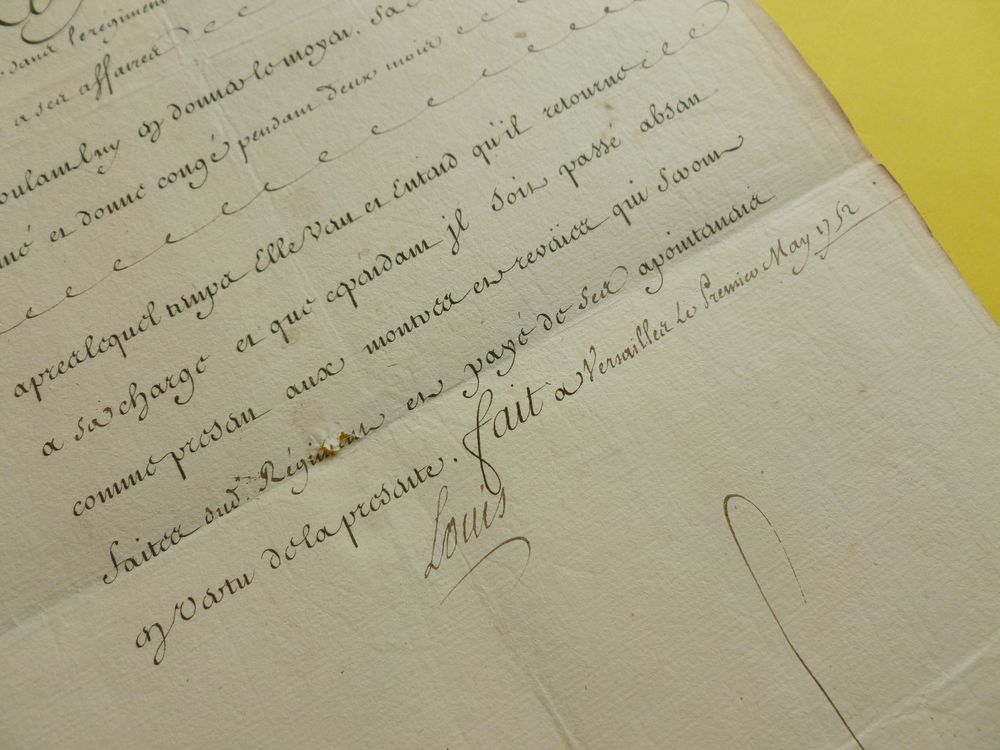 dans le régiment
a ses affaires
voulant luy en donner le moyen, Sa
et donne congé pendant deux mois
apres lequel temps Elle Veut et Entend qu'il retourne
a sa charge et que cependant jl soit passé absent
comme present aux montres et reveües qui seront
faites dud. Régiment et payé de ses apointements
en vertu de la presente. fait a Versailles le Premier May 1752
Louis